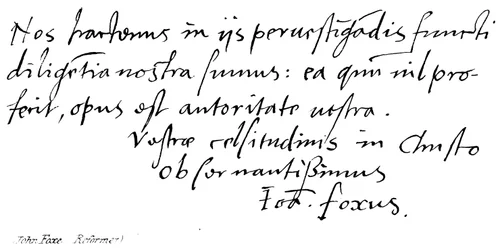 Nos hactenus in ijs peruestigādis functi
diligētia nostra sumus: ea qum nil pro-
ferit, opus est autoritate uestra.
Vestræ celsitudinis in Christo
obseruantißimus
Ioā. foxus.
John Foxe Reformer